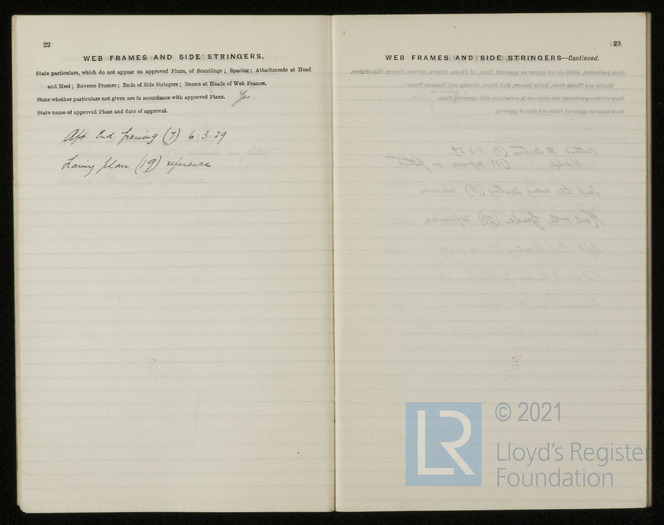 22
WEB FRAMES AND SIDE STRINGERS.
State particulars, which do not appear on approved Plans, of Scantlings; Spacing; Attachments at Head
and Heel; Reverse Frames; Ends of Side Stringers; Beams at Heads of Web Frames.
State whether particulars not given are in accordance with approved Plans. Yes.
State name of approved Plans and date of approval.
Aft End framing (7) 6.3.29
plan (19) reference
23
WEB FRAMES AND SIDE STRINGERS—Continued.
LR
© 2021
Lloyd's Register
Foundation